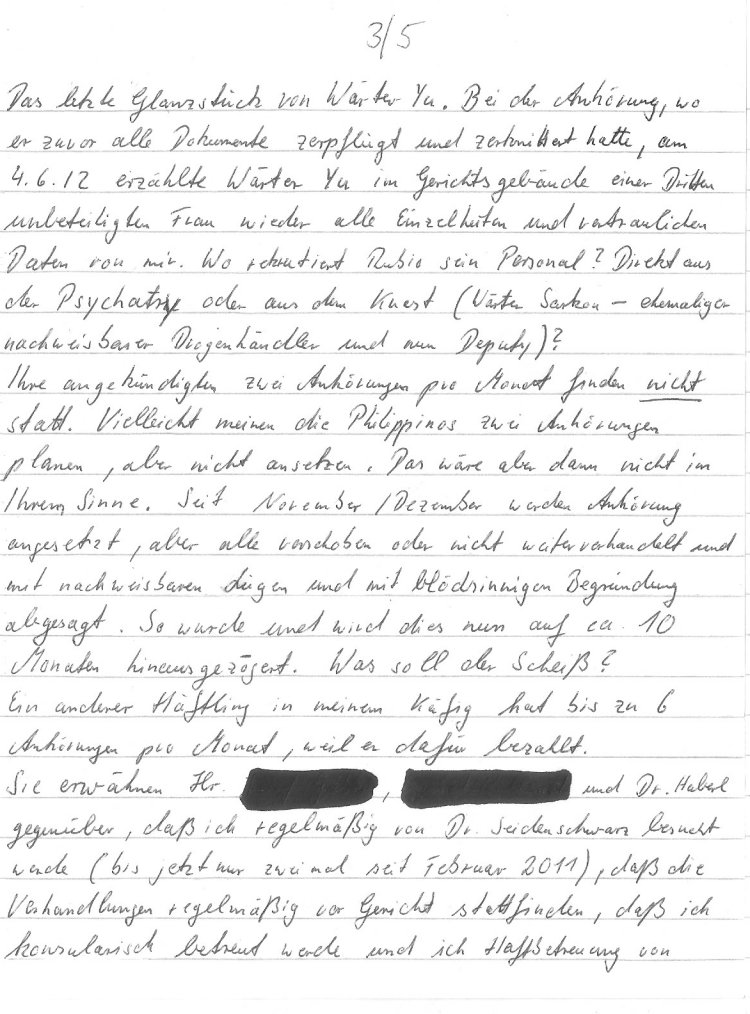 3/5
Das letzte Glanzstück von Wärter Yu. Bei der Anhörung, wo
er zuvor alle Dokumente zerpflügt und zerknittert hatte, am
4.6.12 erzählte Wärter Yu im Gerichtsgebäude einer Dritten
unbeteiligten Frau wieder alle Einzelheiten und vertraulichen
Daten von mir. Wo rekrutiert Rubio sein Personal? Direkt aus
der Psychatrie oder aus dem Knast (Wärter Sarkon – ehemaliger
nachweisbarer Drogenhändler und nun Deputy)?
Ihre angekündigten zwei Anhörungen pro Monat finden nicht
statt. Vielleicht meinen die Philippinos zwei Anhörungen
planen, aber nicht ansetzen. Das wäre aber dann nicht im
Ihrem Sinne. Seit November/Dezember werden Anhörung
angesetzt, aber alle verschoben oder nicht weiterverhandelt und
mit nachweisbaren Lügen und mit blödsinnigen Begründung
abgesagt. So wurde und wird dies nun auf ca. 10
Monaten hinausgezögert. Was soll der Scheiß?
Ein anderer Häftling in meinem Käfig hat bis zu 6
Anhörungen pro Monat, weil er dafür bezahlt.
Sie erwähnen Hr. , und Dr. Haberl
gegenüber, daß ich regelmäßig von Dr. Seidenschwarz besucht
werde (bis jetzt nur zweimal seit Februar 2011), daß die
Verhandlungen regelmäßig vor Gericht stattfinden, daß ich
konsularisch betreut werde und ich Haftbetreuung von